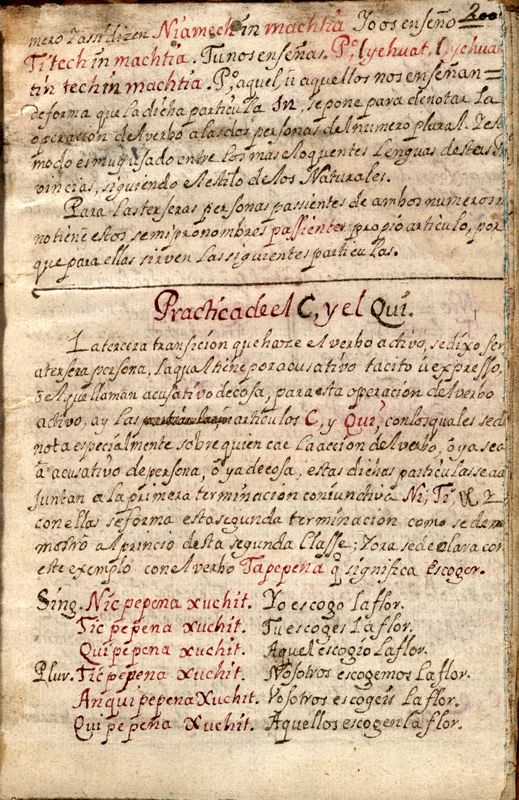 200
mero Zassi dizen Niamech in machtia Yo os enseño
Titech in machtia. Tu nos enseñas. P.º, l yehuat, l, yehuan
tin tech in machtia. P.º, aquel, ù aquellos nos enseñan =
de forma que la dicha particula In, se pone para denotar la
operacion del verbo a las dos personas del numero plural. Y este
modo es muy usado entre los mas eloquentes Lenguas destas Pro
vincias, siguiendo el estilo de los Naturales.
Para las terseras personas passientes de ambos numeros
no tiene estos semipronombres passientes propio articulo, por
que para ellas sirven las siguientes particulas.
Practica de el C, y el Qui.
La tercera transicion que haze el verbo activo, se dixo ser
a tersera persona, la qual tiene por acusativo tacito ù expresso,
Z el que llaman acusativo de cosa, para esta operacion del verbo
activo, ay las articulos C, y Qui, con los quales se de
nota especialmente sobre quien cae la accion del verbo, ò ya sea
à acusativo de persona, ò ya de cosa, estas dichas particulas se ad
Juntan a la primera terminacion coniunctiva Ni, Ti,
con ellas se forma esta segunda terminacion como se de mo
mostrò al princio desta segunda Classe; Y ora se declara con
este exemplo con el verbo Tapepena q̃ significa Escoger.
Sing. Nic pepena xuchit. Yo escogo la flor.
Tic pepena xuchit. Tu escoges la flor.
Qui pepena xuchit. Aquel escogio la flor.
Plur. Tic pepena xuchit. Nosotros escogemos la flor.
Anqui pepena Xuchit. Vosotros escogeis la flor.
Qui pepena xuchit. Aquellos escogen la flor.